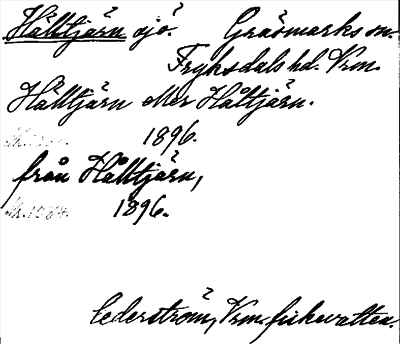 Hålltjärn sjö. Gräsmarks sn.
Fryksdals hd. Vrm.
Hålltjärn eller Håltjärn.
1896.
från Hålltjärn,
1896.
Cederström, Vrm. fiskevatten.